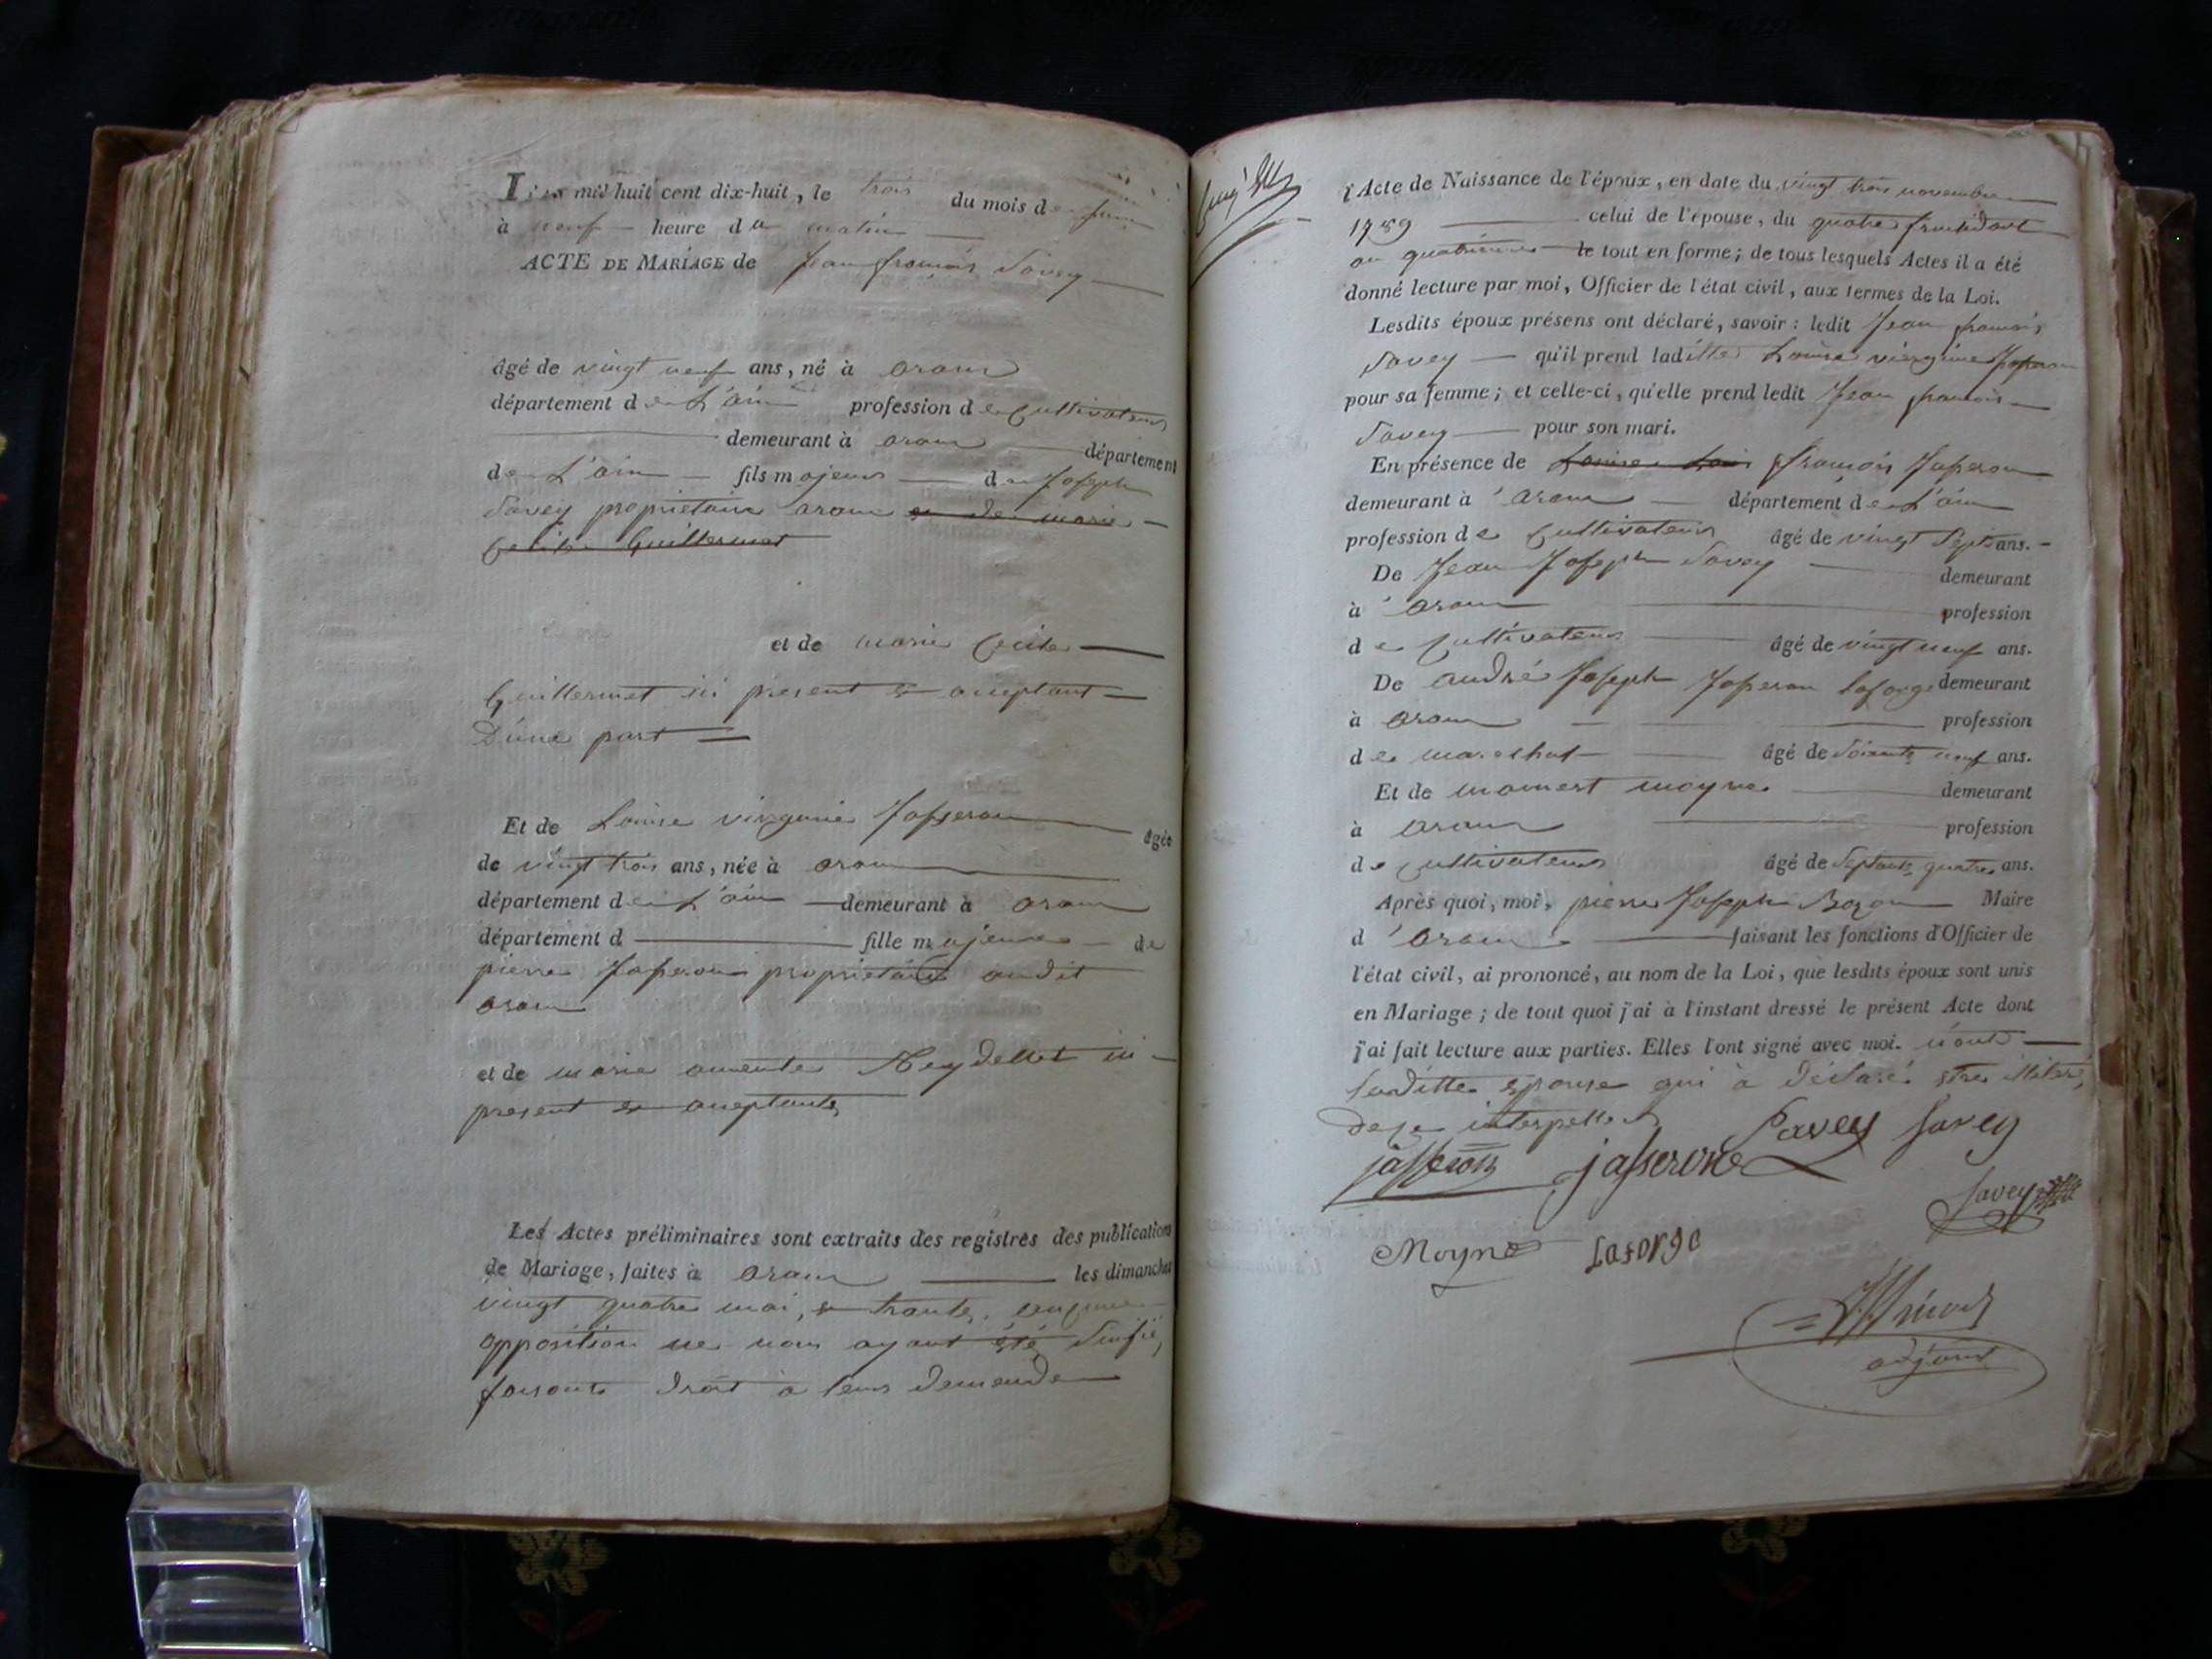 L'an mil huit cent dix-huit, le trois du mois de juin
à neuf heure du matin
ACTE DE MARIAGE de Jean françois Savey
âgé de vingt neuf ans, né à aranc
département de L'ain profession de Cultivateur
demeurant à aranc département
de L'ain fils majeur de Joseph
Savey proprietaire aranc et de marie
Cecile Guillermet
et de marie Cecile
Guillermet ici present et acceptant
D'une part
Et de Louise virginie Jasseron âgée
de vingt trois ans, née à aranc
département de L'ain demeurant à aranc
département d fille majeure de
pierre Jasseron proprietaire audit
aranc
et de marie Reydellet ici
present et acceptante
Les Actes préliminaires sont extraits des registres des publications
de Mariage, faites à aranc les dimanches
vingt quatre mai, et trante, aucune
opposition ne nous ayant été
faisant droit à leur demande
l'Acte de Naissance de l'époux, en date du vingt trois novembre
1789 celui de l'épouse, du quatre fructidort
an quatrieme le tout en forme; de tous lesquels Actes il a été
donné lecture par moi, Officier de l'état civil, aux termes de la Loi.
Lesdits époux présens ont déclaré, savoir: ledit Jean françois
Savey qu'il prend laditte Louise vierginie Jasseron
pour sa femme; et celle-ci, qu'elle prend ledit Jean françois
Savey pour son mari.
En présence de Louise Loui françois Jasseron
demeurant à aranc département de L'ain
profession de Cultivateur âgé de vingt Sept ans.
De Jean Joseph Savey demeurant
à aranc profession
de Cultivateur âgé de vingt neuf ans.
De andré Joseph Jasseron laforge demeurant
à aranc profession
de mareshal âgé de Soixante neuf ans.
Et de mamert moyne demeurant
à aranc profession
de Cultivateur âgé de Septante quatre ans.
Après quoi, moi, pierre Joseph Bozon Maire
d'aranc faisant les fonctions d'Officier de
l'état civil, ai prononcé, au nom de la Loi, que lesdits époux sont unis
en Mariage; de tout quoi j'ai à l'instant dressé le présent Acte dont
j'ai fait lecture aux parties. Elles l'ont signé avec moi. non
laditte epouse qui à déclaré
de ce interpellée
jasseron jasserone Savey Savey
Savey
Moyne Laforge
adjoint